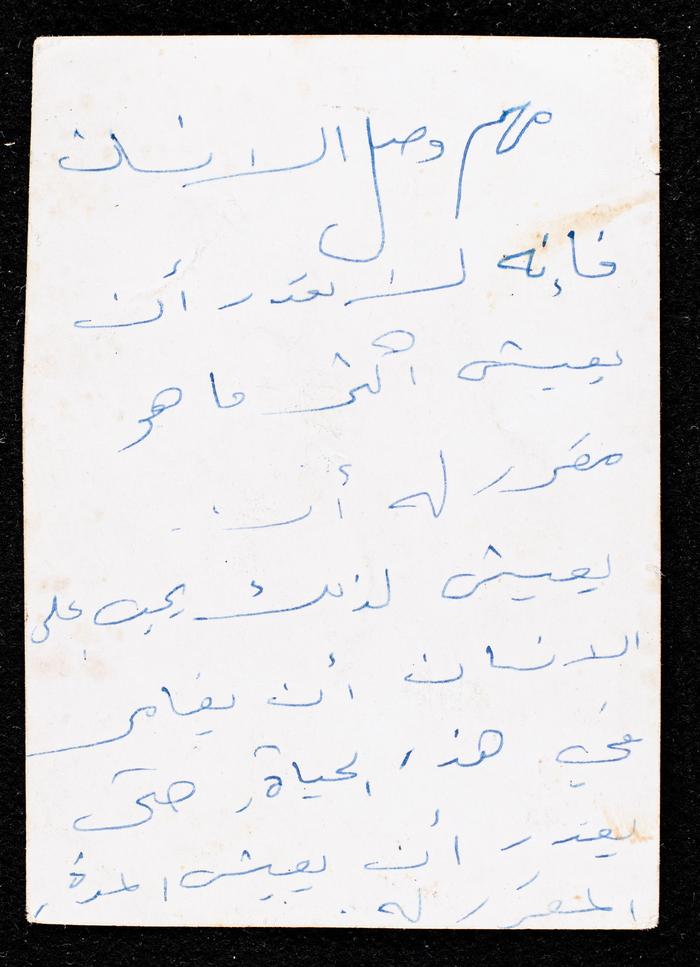 مهم وصل الانسان
فإنه لا يقدر أن
يعيش اكثر ما هو
مقرر له أن
يعيش لذلك يجب على
الانسان أن يغامر
في هذه الحياة، حتى
يقدر أن يعيش المدة،
المقرر له.